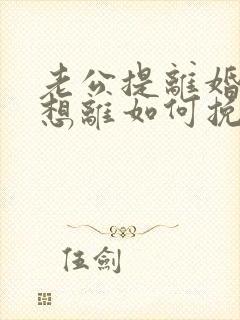 老公提離婚
想離如何挽
伍劍